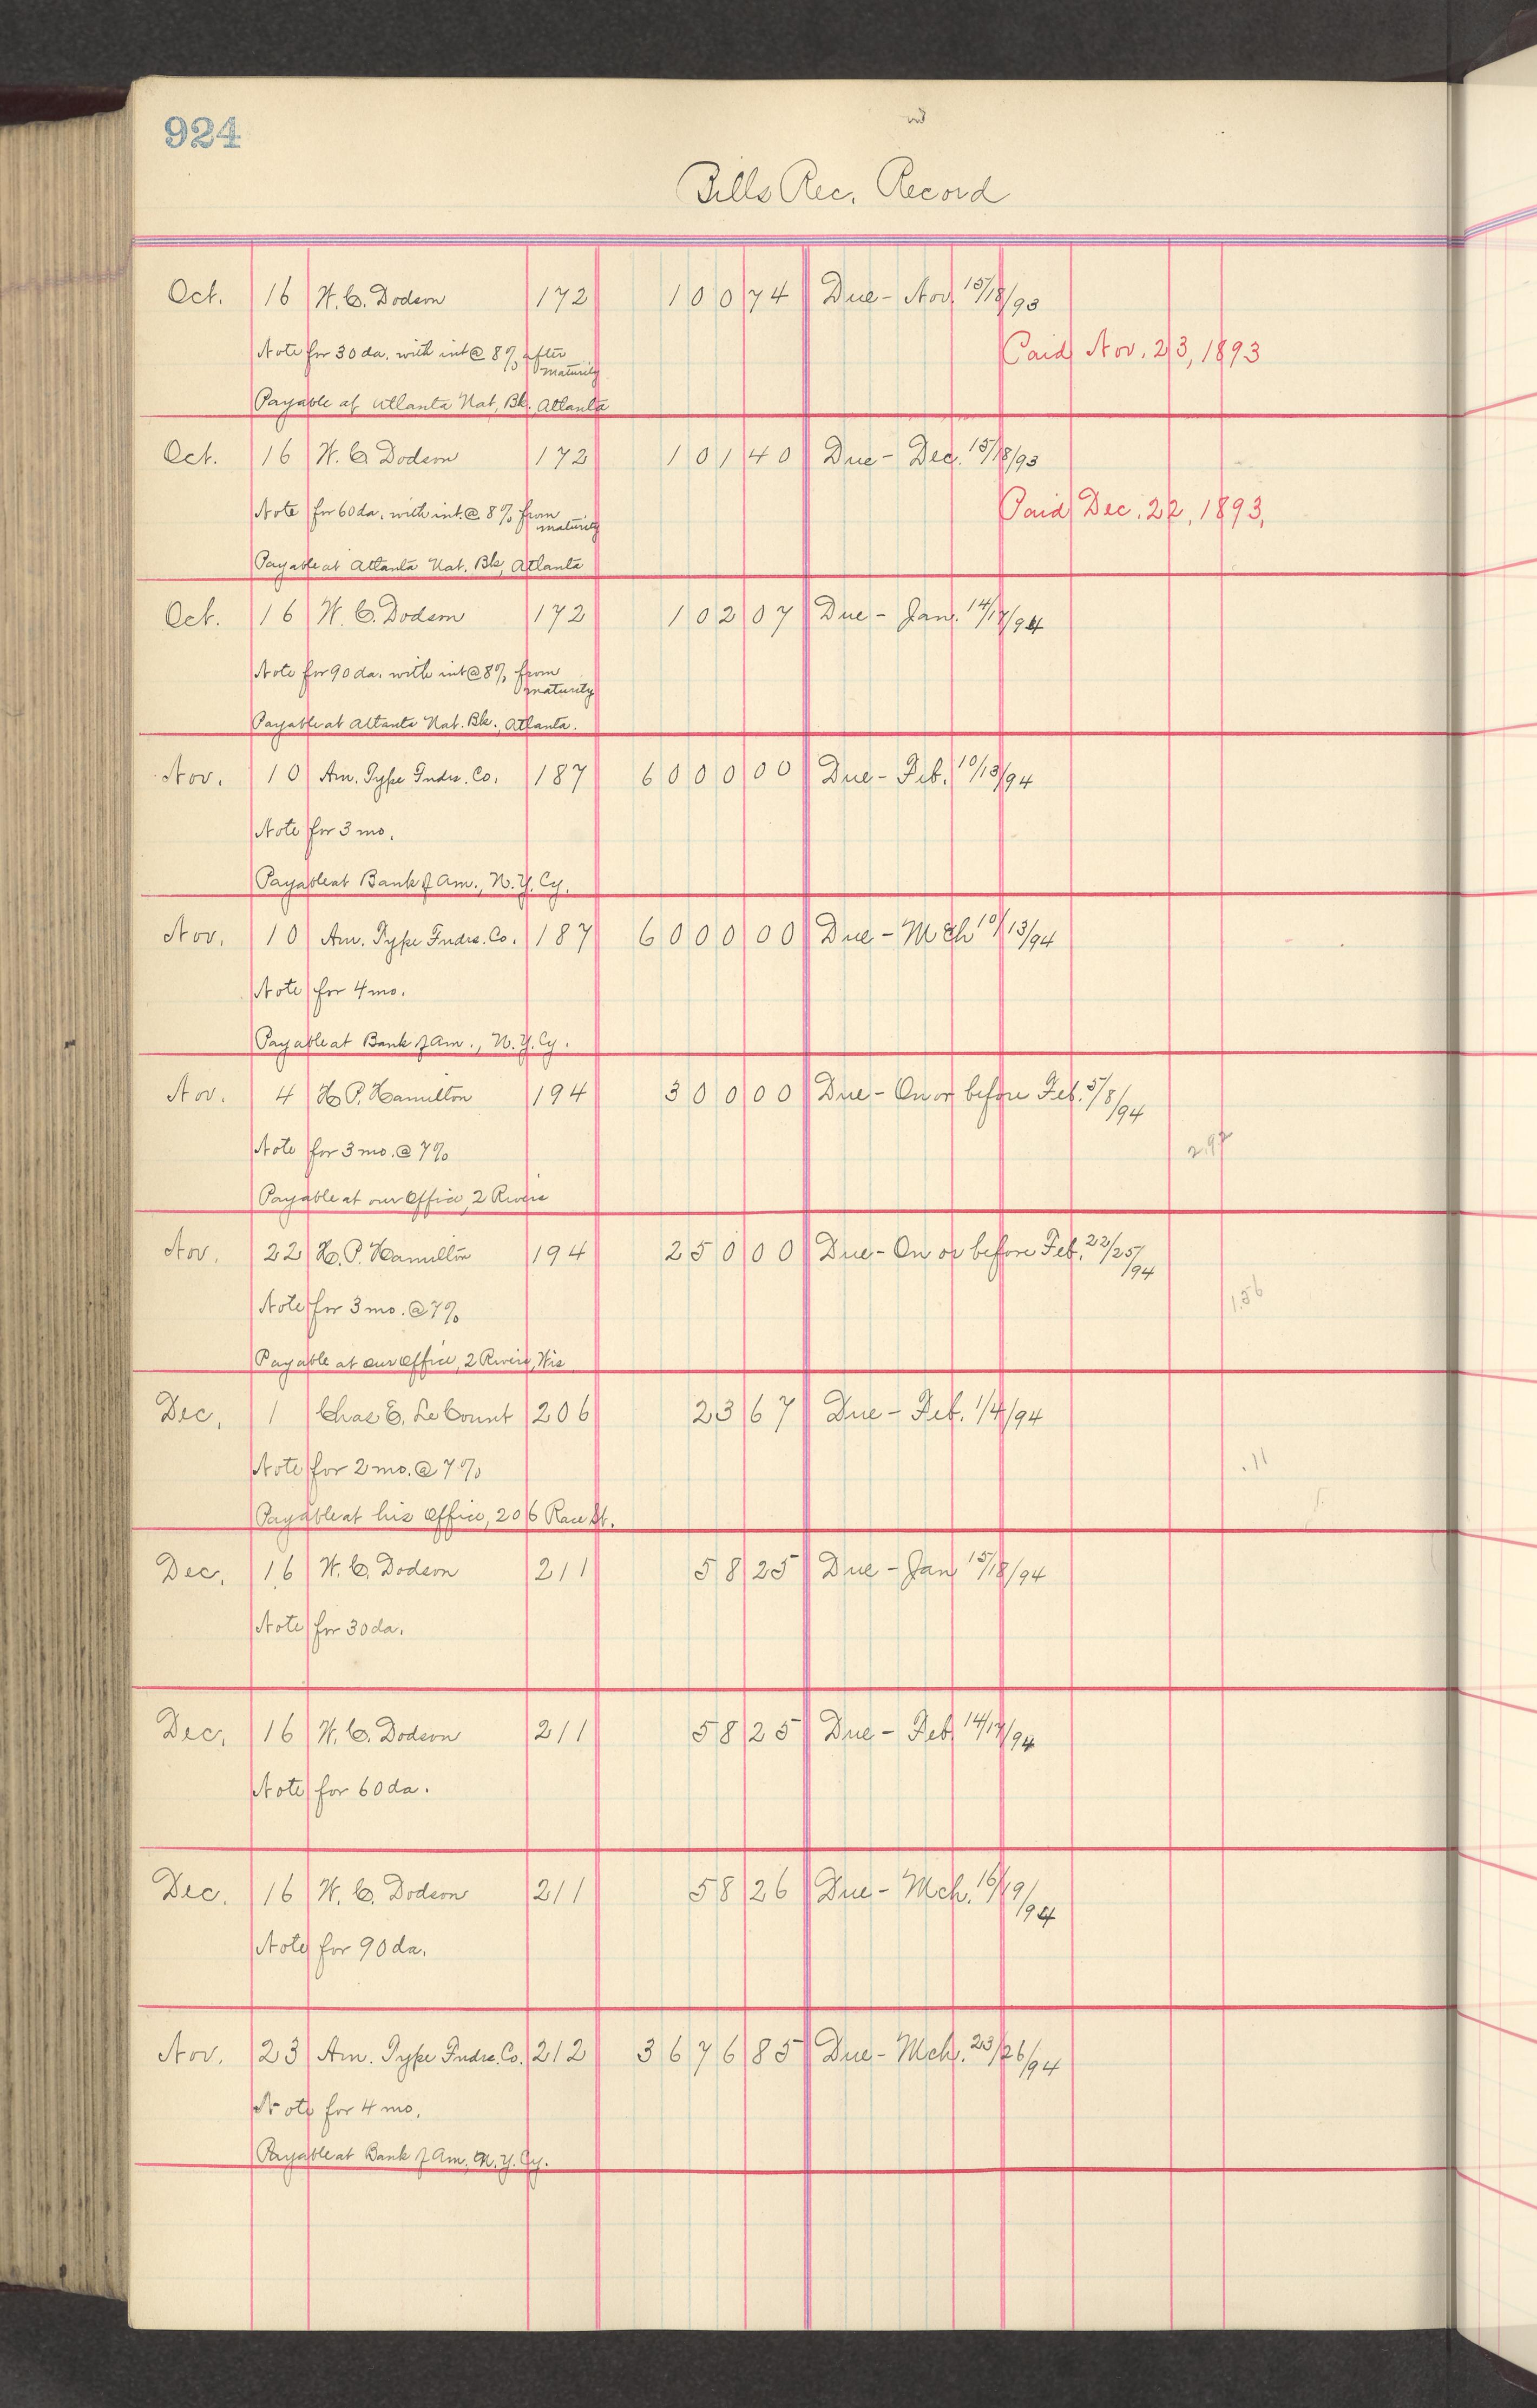 924
Bills Rec. Record
Oct. 16 W. C. Dodson 172 100 74 Due - Nov. 15/18/93
Note for 30 da. with int @ 8% after maturity
Paid Nov. 23, 1893
Payable at Atlanta Nat. Bk. Atlanta
Oct. 16 W. C. Dodson 172 101 40 Due - Dec. 15/18/93
Note for 60 da. with int. @ 8% from maturity
Paid Dec. 22, 1893,
Payable at Atlanta Nat. Bk, Atlanta
Oct. 16 W. C. Dodson 172 102 07 Due - Jan. 14/17/94
Note for 90 da. with int @ 8% from maturity
Payable at Atlanta Nat. Bk., Atlanta.
Nov. 10 Am. Type Fndrs. Co. 187 6000 00 Due - Feb. 10/13/94
Note for 3 mo.
Payable at Bank of Am., N.Y. Cy.
Nov. 10 Am. Type Fndrs. Co. 187 6000 00 Due - Mch 10/13/94
Note for 4 mo.
Payable at Bank of Am., N.Y. Cy.
Nov. 4 H. P. Hamilton 194 300 00 Due - On or before Feb. 5/8/94
Note for 3 mo. @ 7%
Payable at our Office, 2 Rivers
Nov. 22 H. P. Hamilton 194 250 00 Due - On or before Feb. 22/25/94
Note for 3 mo. @ 7%
1.56
Payable at our Office, 2 Rivers, Wis
Dec. 1 Chas E. Le Count 206 23 67 Due - Feb. 1/4/94
Note for 2 mo. @ 7%
.11
Payable at his Office, 206 Race St.
Dec. 16 W. C. Dodson 211 58 25 Due - Jan 15/18/94
Note for 30 da.
Dec. 16 W. C. Dodson 211 58 25 Due - Feb 14/17/94
Note for 60 da.
Dec. 16 W. C. Dodson 211 58 26 Due - Mch. 16/19/94
Note for 90 da.
Nov. 23 Am. Type Fndrs. Co. 212 3676 85 Due - Mch. 23/26/94
Note for 4 mo.
Payable at Bank of Am. N.Y. Cy.